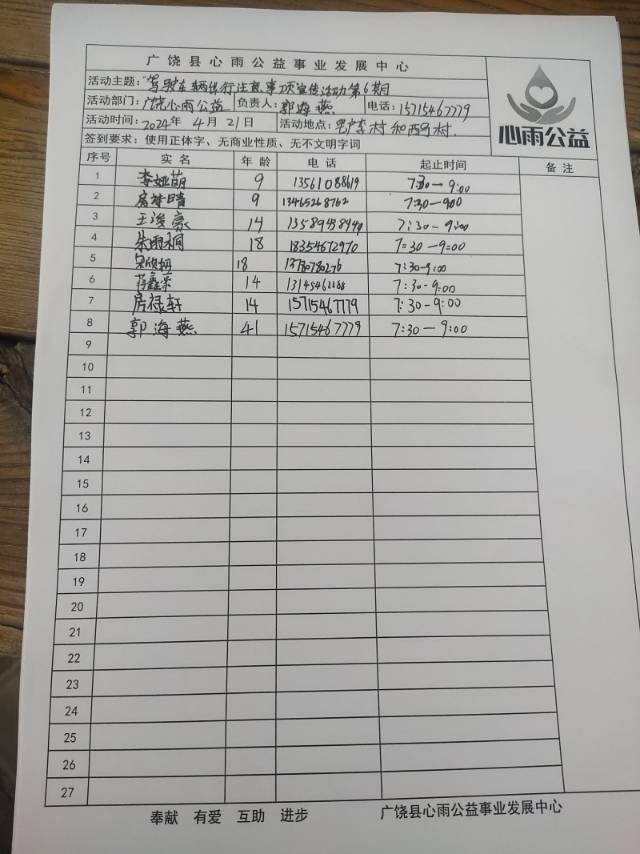 广饶县心雨公益事业发展中心
活动主题："驾驶车辆出行注意事项宣传活动第6期
活动部门：广饶心雨公益 负责人：郭海燕 电话：15715467779
活动时间：2024年4月21日 活动地点： 李村和西 村.
签到要求：使用正体字、无商业性质、无不文明字词
心雨公益
序号 实名 年龄 电话 起止时间 备注
1 李娅萌 9 13561088619 7:30-9:00
2 房 晴 9 13465268762 7:30-9:00
3 王浚豪 14 7:30-9:00
4 朱雨桐 18 18354672970 7:30-9:00
5 18 13780780276 7:30-9:00
6 蒋鑫 14 7:30-9:00
7 房禄轩 14 15715467779 7:30-9:00
8 郭海燕 41 15715467779 7:30-9:00
9
10
11
12
13
14
15
16
17
18
19
20
21
22
23
24
25
26
27
奉献 有爱 互助 进步 广饶县心雨公益事业发展中心